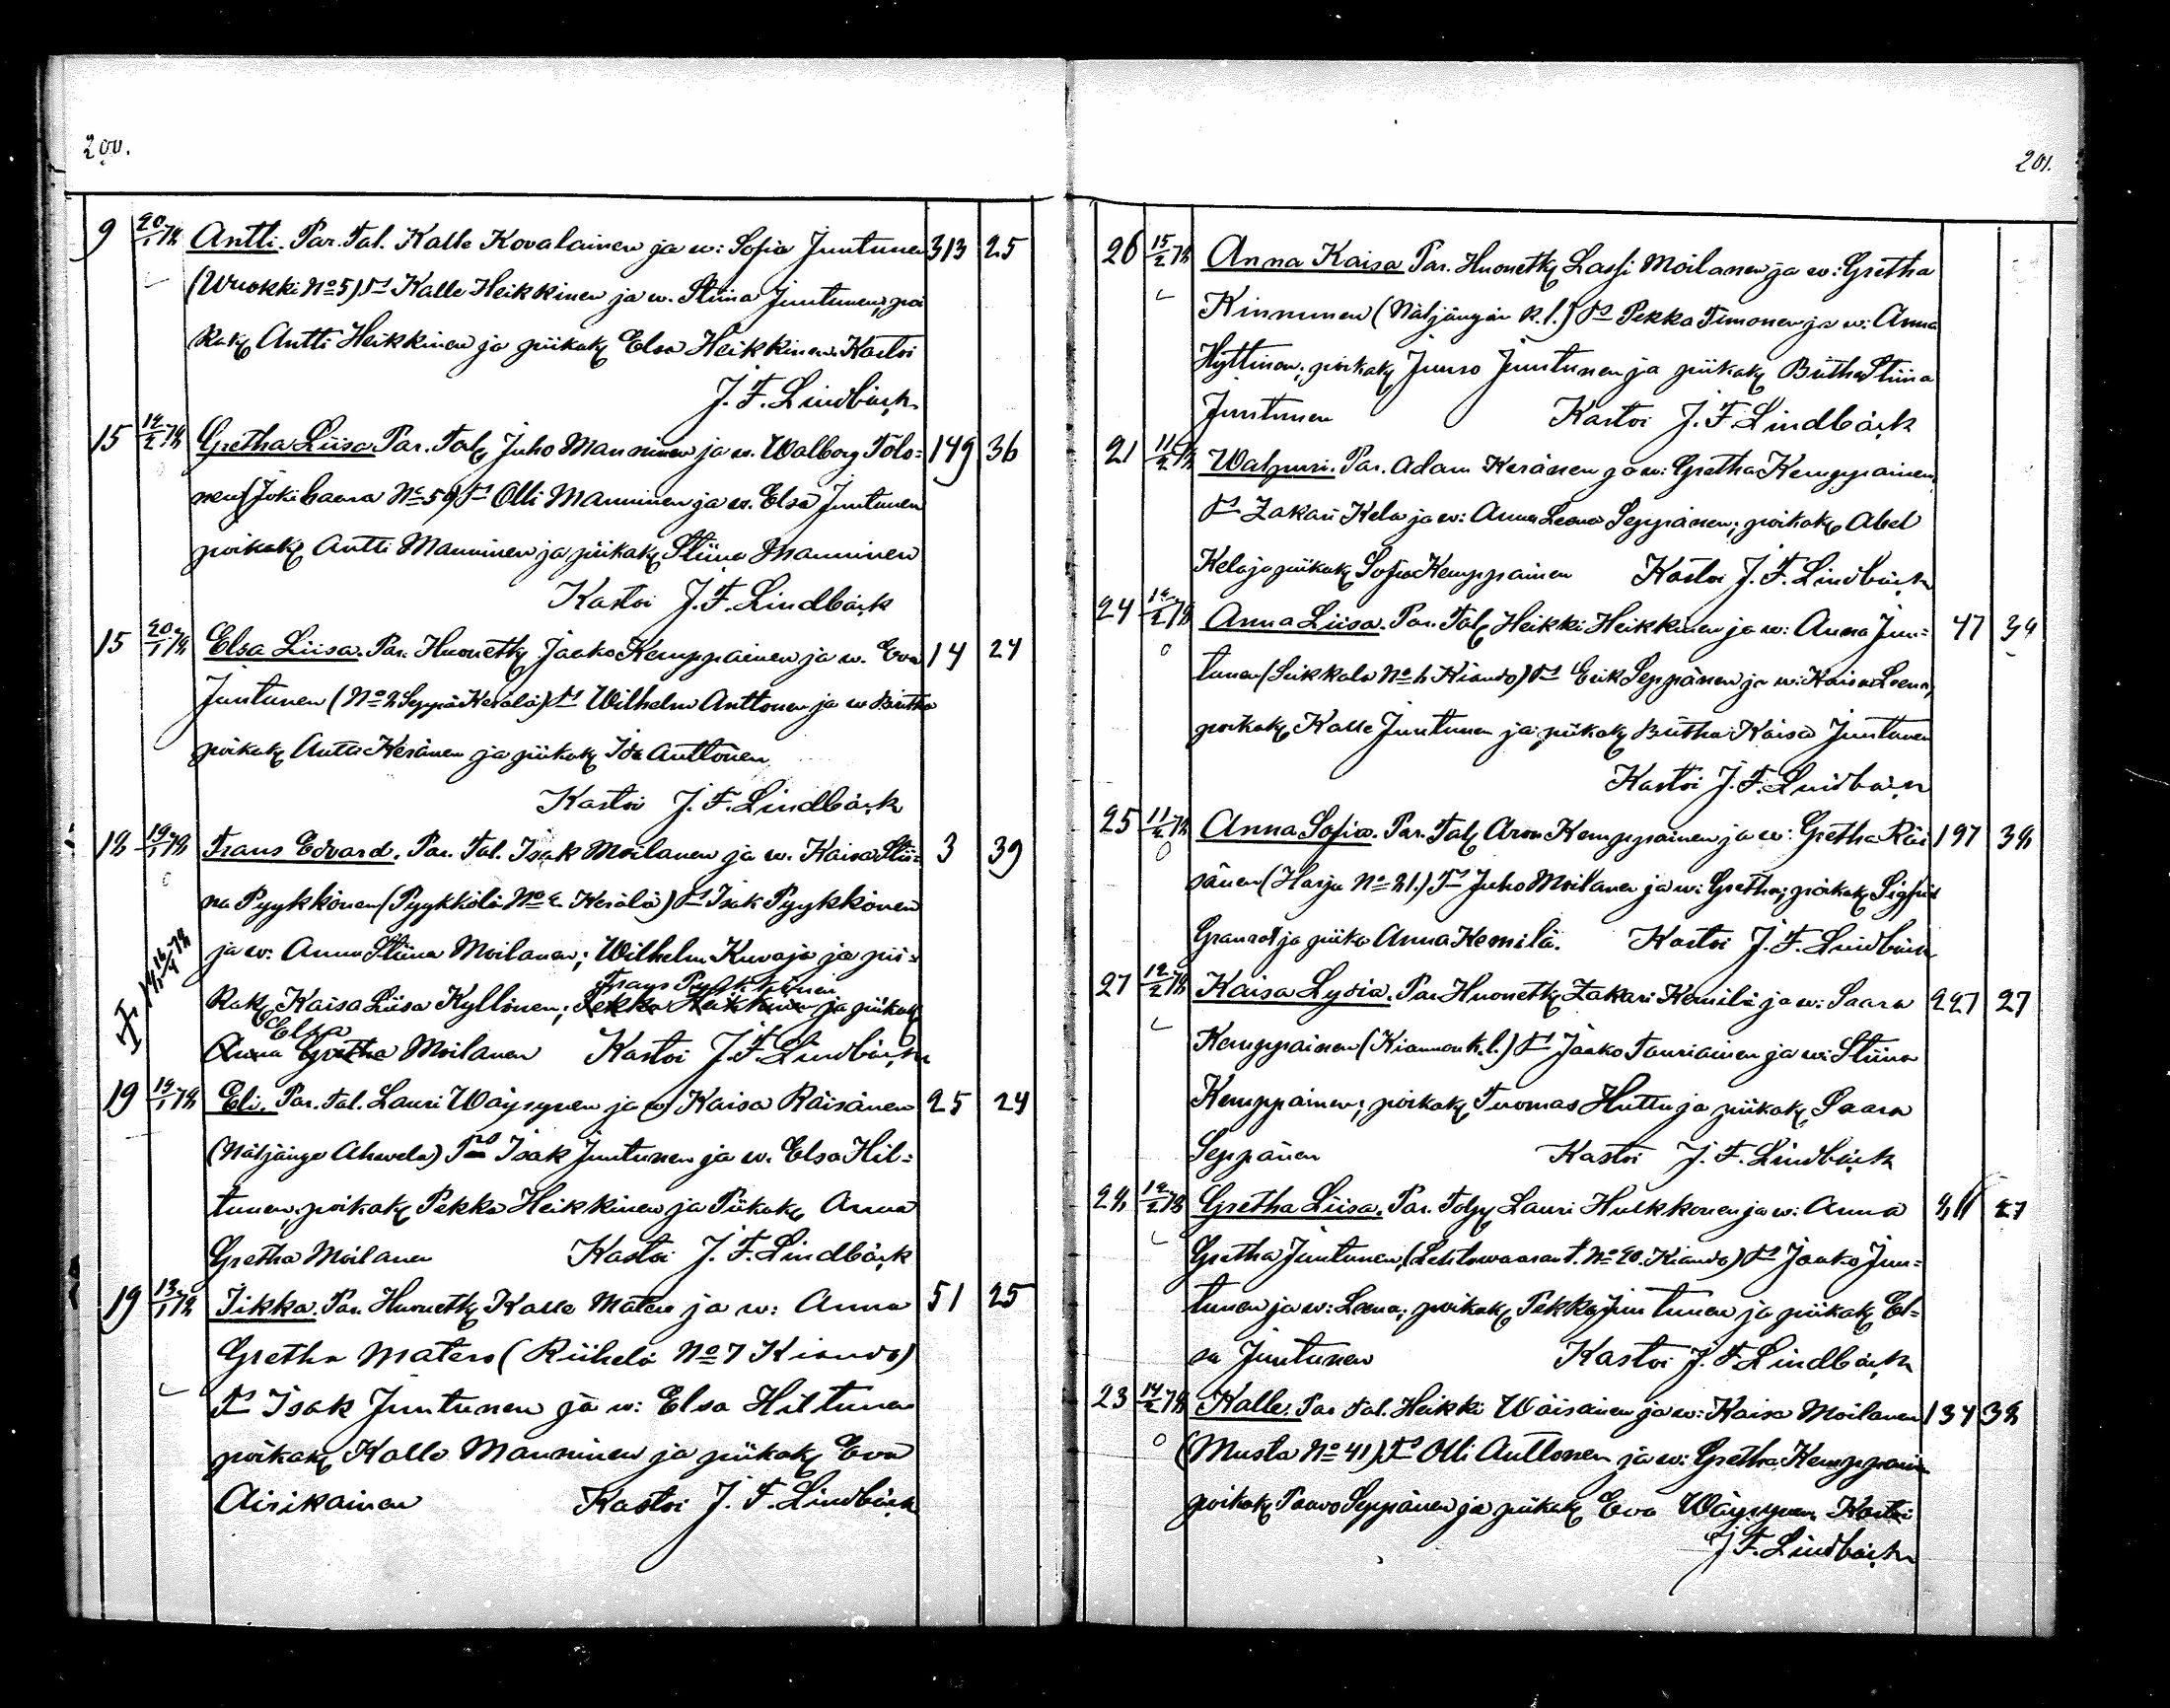 200.
9 20/1 78 Antti. Par. Tal. Kalle Kovalainen ja w: Sofia Juntunen 313 25
(Wuokki No 5) Ts Kalle Heikkinen ja w. Stiina Juntunen, poi
kak Antti Heikkinen ja piikak Elsa Heikkinen. Kastoi
J. F. Lindbäck
15 12/2 78 Gretha Liisa. Par. Tal. Juho Manninen ja w. Walborg Tolo= 149 36
nen (Jokivaara No 59) Ts Olli Manninen ja w. Elsa Juntunen
poikak Antti Manninen ja piikak Stiina Manninen
Kastoi J. F. Lindbäck
15 20/1 78 Elsa Liisa. Par. Huonetk Jaako Kemppainen ja w. Eva 14 24
Juntunen (No 2 Seppä Kerälä) Ts Wilhelm Anttonen ja w Britha
poikak Antti Keränen ja piikak Ida Anttonen
Kastoi J. F. Lindbäck
18 19/1 78 Frans Edvard. Par. Tal. Isak Moilanen ja w. Kaisa Stii= 3 39
na Pyykkönen (Pyykkölä No Kerälä) Ts Isak Pyykkönen
ja w. Anna Stiina Moilanen; Wilhelm Kuvaja ja pii=
Frans Pyykkönen
kak Kaisa Liisa Kyllönen; Pekka Heikkinen ja piikak
Elsa
Anna Gretha Moilanen Kastoi J. F. Lindbäck
19 19/1 78 Eli. Par. Tal. Lauri Wäysynen ja w Kaisa Räisänen 25 24
(Näljänge Ahavela) Ts Isak Juntunen ja w. Elsa Hil=
tunen, poikak Pekka Heikkinen ja Piikak Anna
Gretha Moilanen Kastoi J. F. Lindbäck
19 13/1 78 Iikka. Par. Huonetk Kalle Matero ja w: Anna 51 25
Gretha Matero (Riihelä No 7 Kiando)
Ts Isak Juntunen ja w: Elsa Hiltunen
poikak Kalle Manninen ja piikak Eva
Airikainen Kastoi J. F. Lindbäck
201.
26 15/2 78 Anna Kaisa Par. Huonetk Lassi Moilanen ja w: Gretha
Kinnunen (Näljängän k. l.) Ts Pekka Timonen ja w: Anna
Hyttinen, poikak Juuso Juntunen ja piikak Britha Stiina
Juntunen Kastoi J. F. Lindbäck
21 11/2 78 Walpuri. Par. Adam Keränen ja w: Gretha Kemppainen,
Ts Zakari Kela ja w: Anna Leena Seppänen; poikak Abel
Kela ja piikak Sofia Kemppainen Kastoi J. F. Lindbäck
24 12/2 78 Anna Liisa. Par. Tal Heikki Heikkinen ja w: Anna Jun= 47 34
tunen (Seikkala No Kiando) Ts Erik Seppänen ja w: Kaisa Leena,
poikak Kalle Juntunen ja piikak Britha Kaisa Juntunen
Kastoi J. F. Lindbäck
25 11/2 78 Anna Sofia. Par. Tal Aron Kemppainen ja w: Gretha Räi 197 38
sänen (Harju No 21.) Ts Juho Moilanen ja w: Gretha; poikak Sigfrid
ja piika Anna Kemilä. Kastoi J. F. Lindbäck
27 12/2 78 Kaisa Lydia. Par Huonetk Zakari Kemilä ja w: Saara 227 27
Kemppainen (Kiannon k. l.) Ts Jaako Tauriainen ja w: Stiina
Kemppainen; poikak Tuomas Huttu ja piikak Saara
Seppänen Kastoi J. F. Lindbäck
28 12/2 78 Gretha Liisa. Par. Lauri Hulkkonen ja w: Anna 27
Gretha Juntunen, (Lehtowaara t. No 20. Kiando) Ts Jaako Jun=
tunen ja w: Leena; poikak Pekka Juntunen ja piikak El=
sa Juntunen Kastoi J. F. Lindbäck
23 14/2 78 Kalle. Par Tal. Heikki Wäisänen ja w: Kaisa Moilanen 134 38
(Musta No 41) Ts Olli Anttonen ja w: Gretha Kemppain
poikak Paavo Seppänen ja piikak Eva Wäysynen. Kastoi
J. F. Lindbäck